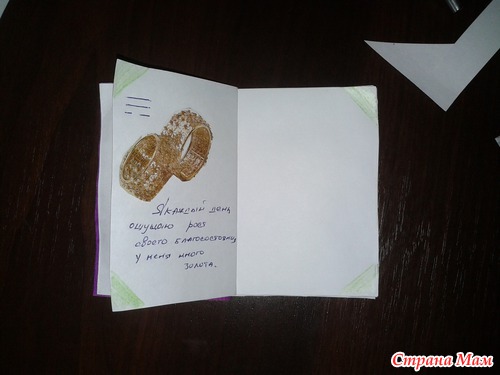 Я каждый день
ощущаю рост
своего благосостояния,
у меня много
золота.
Страна Мам